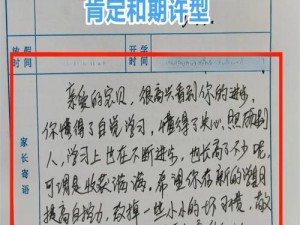 肯定和期许型
放假时间
开学时间
家长寄语
亲爱的宝贝，很高兴看到你的进步，
你懂得了自觉学习，懂得了关心、照顾别
人，学习上也在不断进步，也长高了不少呢，
可谓是收获满满。希望你在新的学期
提高自控力，改掉一些小小的坏习惯，敢